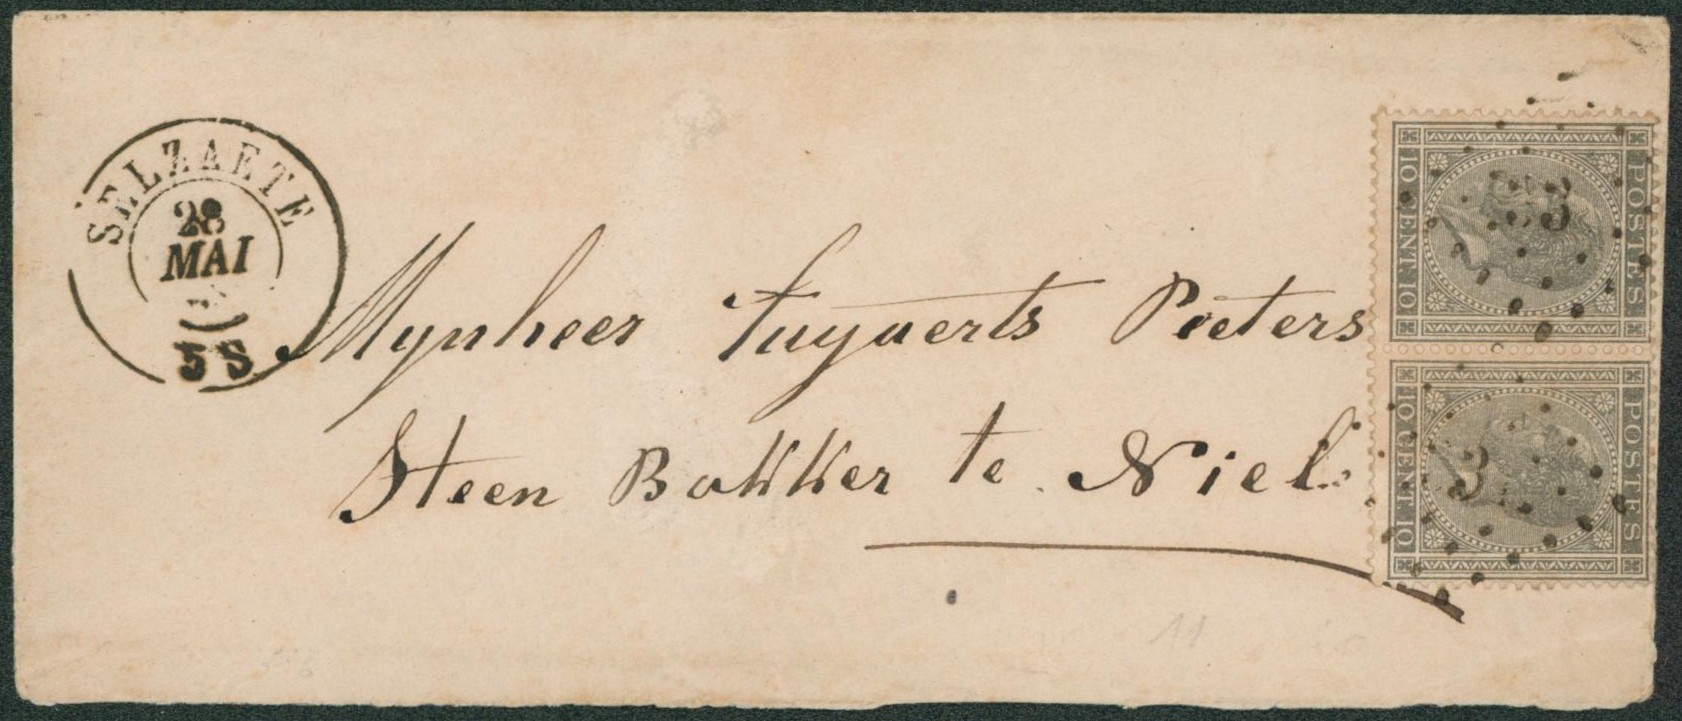 SELZAETE
28
MAI
5 S
Mynheer Tuyaerts Peeters
Steen Bakker te Niel
POSTES
10 CENT. 10
POSTES
10 CENT. 10
11